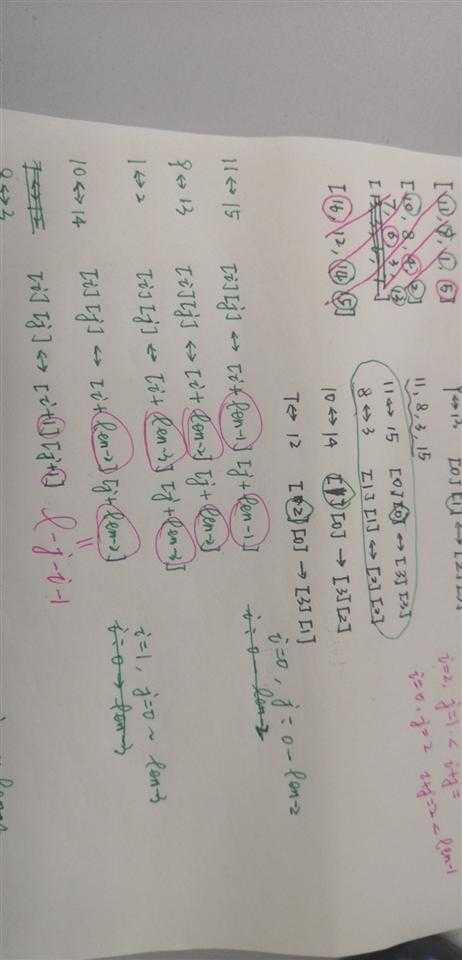 [11, 9, 1, 5]
[10, 8, 4, 2]
7, 6, 3, 13
[16, 12, 14, 15]
9↔13 [0][1] ↔ [2][3]
11, 8, 3, 15
11 ↔ 15 [0][0] ↔ [3][3]
8 ↔ 3 [1][1] ↔ [2][2]
10 ↔ 14 [1][0] → [3][2]
7 ↔ 12 [2][0] → [3][1]
i=2, j=1 < i+j=
i=0, j=2 i+j=2 < len-1
11 ↔ 15 [i][j] ↔ [i+len-1][j+len-1]
i=0, j=0 ~ len-2
9 ↔ 13 [i][j] ↔ [i+len-2][j+len-2]
1 ↔ 2 [i][j] ↔ [i+len-3][j+len-3]
i=1, j=0 ~ len-3
10 ↔ 14 [i][j] ↔ [i+len-2][j+len-2]
[i][j] ↔ [i+1][j+1] l-j-i-1
8 ↔ 3